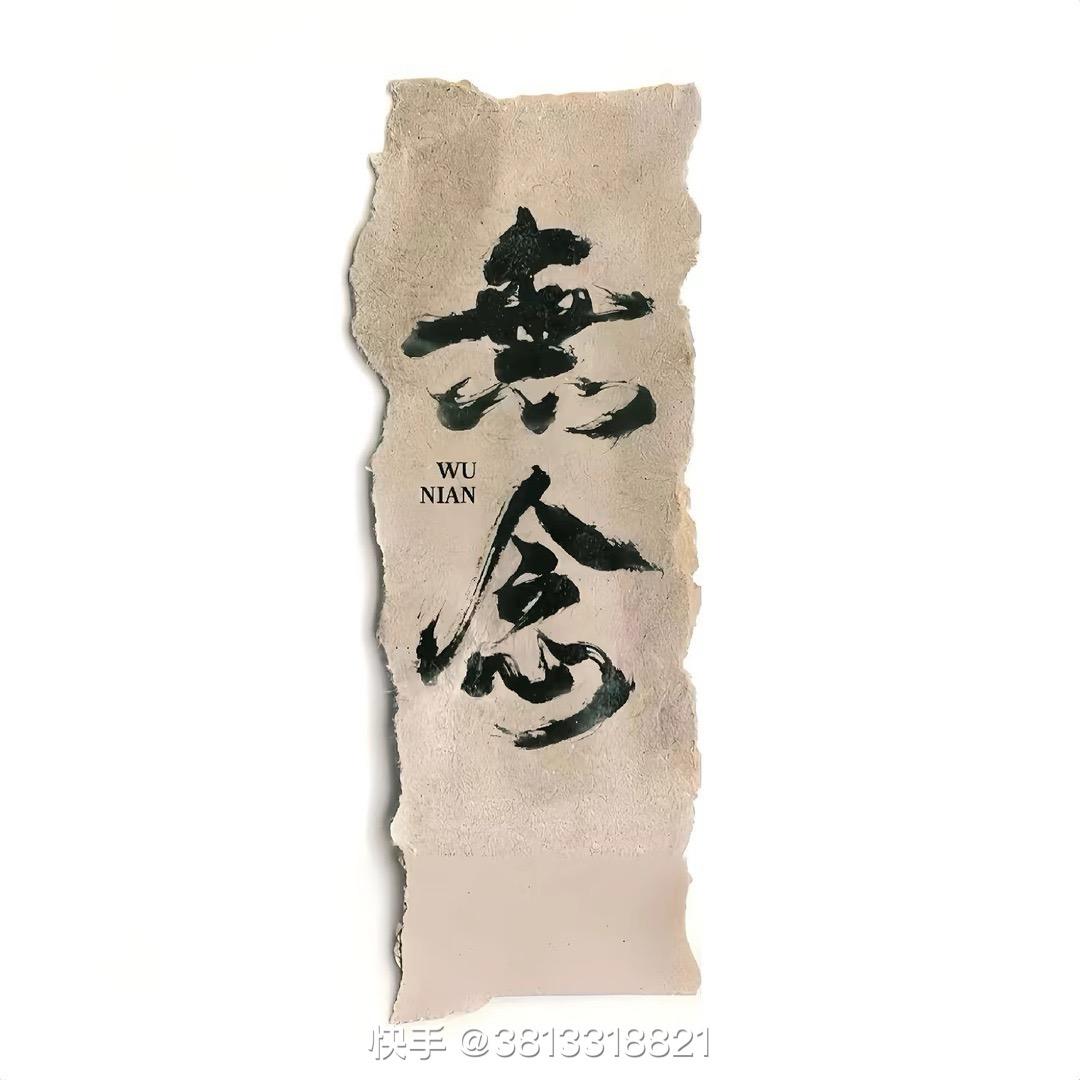 無
念
WU
NIAN
快手 @3813318821